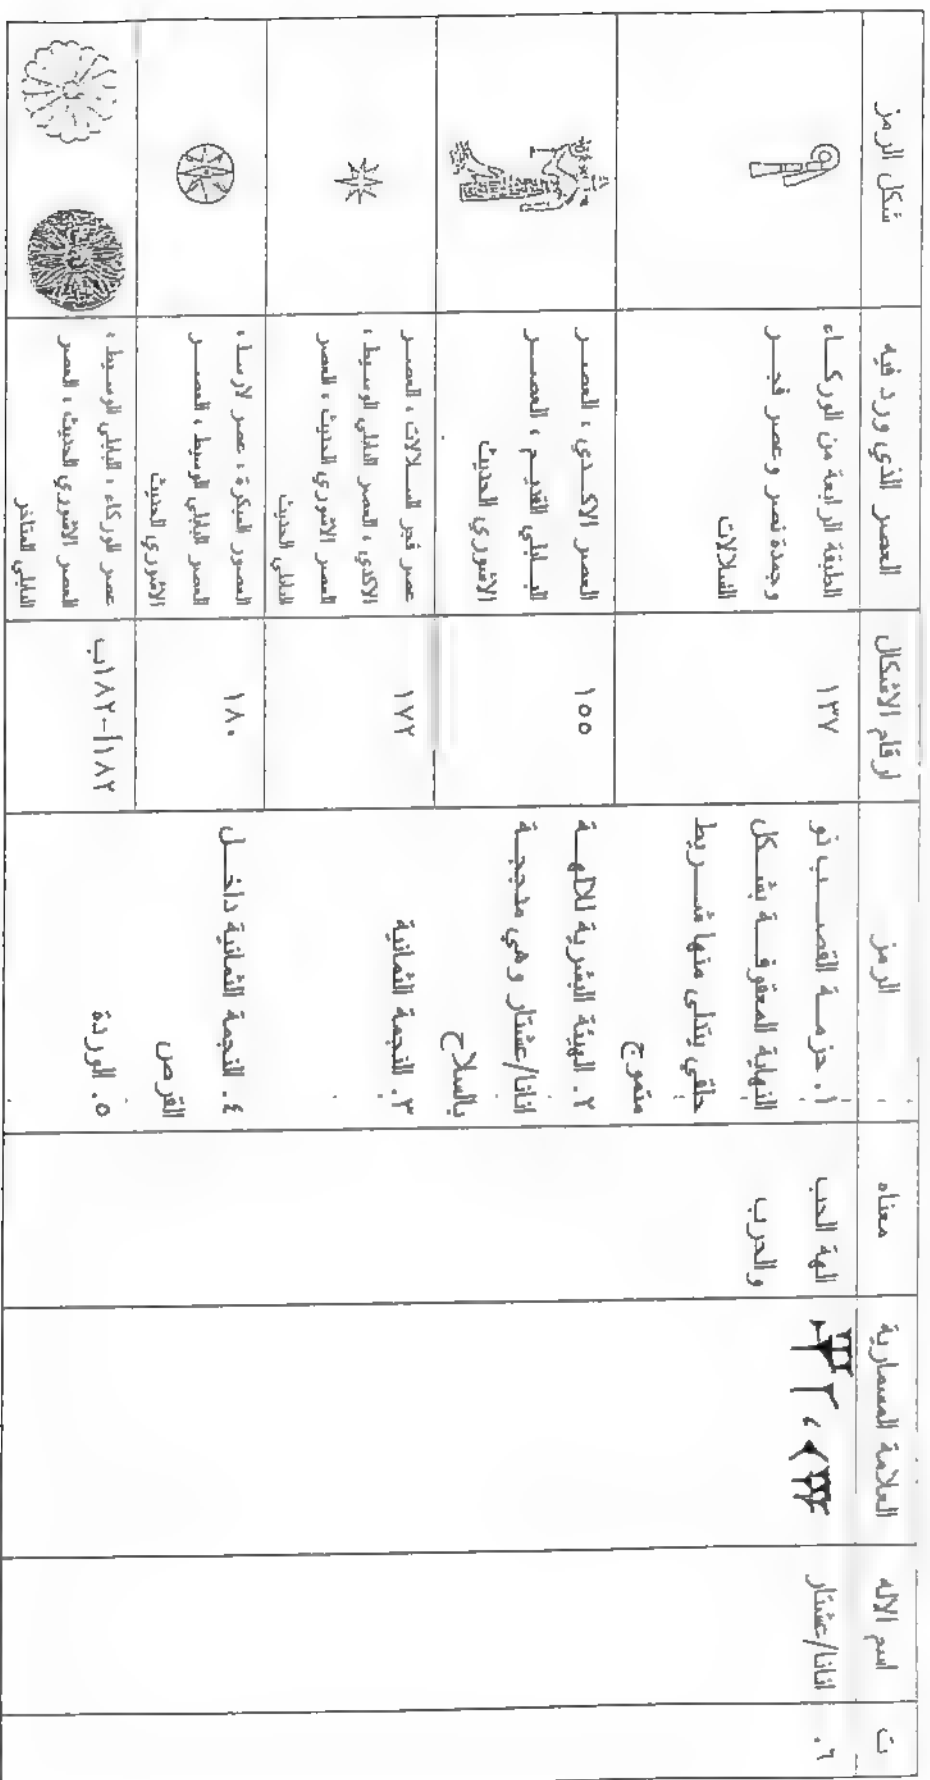 ت
اسم الاله
العلامة المسمارية
معناه
الرمز
ارقام الاشكال
العصر الذي ورد فيه
شكل الرمز
٦.
انانا/عشتار
الهة الحب
والحرب
١. حزمة القصب ذو
النهاية المعقوفة بشكل
حلقي يتدلى منها شريط
متموج
١٣٧
الطبقة الرابعة من الوركاء
وجمدة نصر وعصر فجر
السلالات
٢. الهيئة البشرية للالهة
انانا/عشتار وهي مدججة
بالسلاح
١٥٥
العصر الاكدي ، العصر
البابلي القديم ، العصر
الاشوري الحديث
٣. النجمة الثمانية
١٧٢
عصر فجر السلالات ، العصر
الاكدي ، العصر البابلي الوسيط ،
العصر الاشوري الحديث ، العصر
البابلي الحديث
٤. النجمة الثمانية داخل
القرص
١٨٠
العصور المبكرة ، عصر لارسا ،
العصر البابلي الوسيط ، العصر
الاشوري الحديث
٥. الوردة
١٨٢أ-١٨٢ب
عصر الوركاء ، البابلي الوسيط ،
العصر الاشوري الحديث ، العصر
البابلي المتاخر